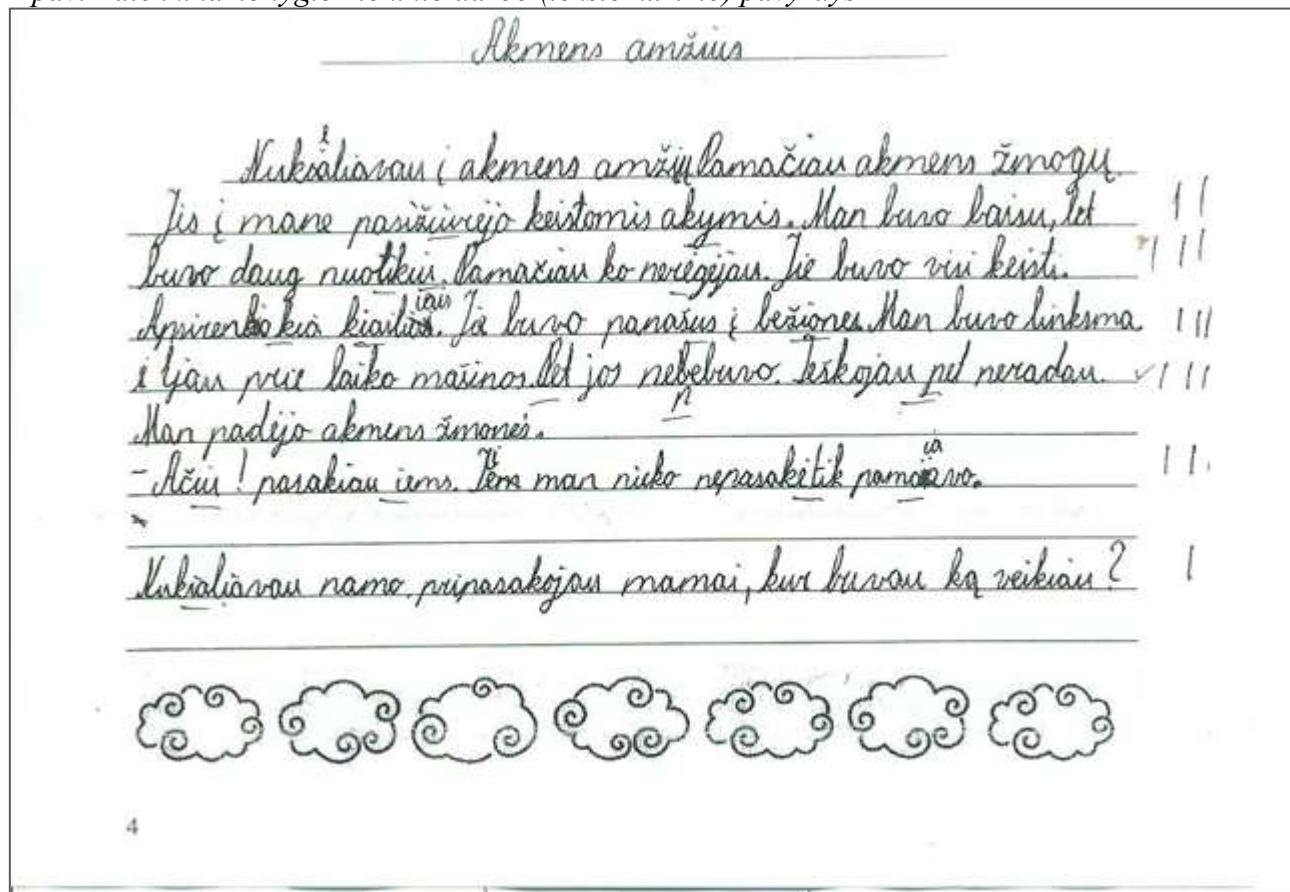 Akmens amžius
Nuksaliavau į akmens amžių Pamačiau akmens žmogų
Jis į mane pasižiuvejo keistomis akymis. Man buvo baisu, let
buvo daug nuotikiu. Pamačiau ko neregėjau. Jie buvo visi keisti.
kią kiailiais. Ją buvo panašus į bežiones. Man buvo linksma
ė Ijau prie laiko mašinos. Pet jos nebebuvo. Ieškojau pet neradau.
n
Man padėjo akmens žmonės.
- Ačiu! pasakiau iems. man nieko nepasakė tik
Nuksaliavau namo. pripasakojau mamai, kur buvau ką veikiau?
4